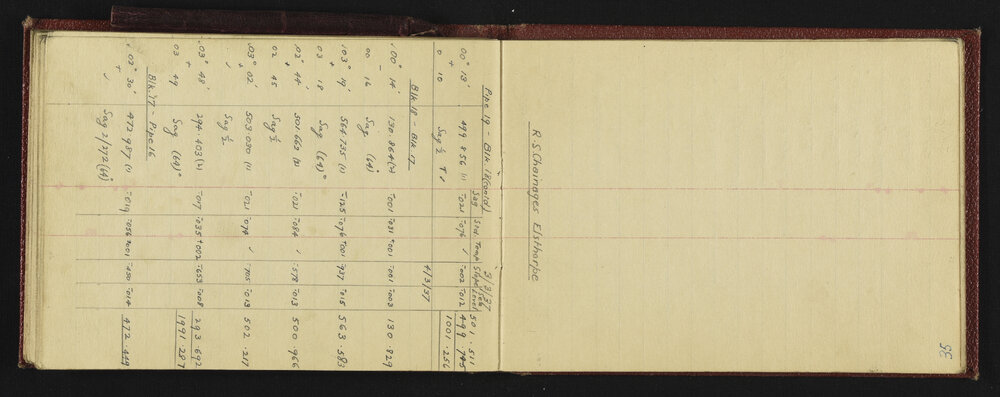 35
R.S Chainages Elsthorpe
Pipe 19 - Blk 18 (contd). 3/3/37
Sag Std Temp Slope Sea Level 501.511
00° 13' 499.855 (1) -.021 -.076 ✓ -.002 -.012 499.745
+
0 10 Sag ½ T✓ 1001.256
4/3/37
Blk 18 - Blk 17
.00° 14' 130.864(2) -.001 -.031 +.001 -.001 -.003 130.829
-
00 16 Sag (64°)
.03° 19' 564.735 (1) -.125 -.076 +.001 -.937 -.015 563.583
+
03 18 Sag (64)°
.02° 44' 501.662 (2) -.021 -.084 ✓ -.578 -.013 500.966
+
02 45 Sag ½
.03° 02' 503.030 (1) -.021 -.074 ✓ -.705 -.013 502.217
+
✓ Sag ½
.03° 48' 294.403(2) -.017 -.035 +.002 -.653 -.008 293.692
+
03 49 Sag (64)° 1991.287
Blk 17 - Pipe 16
.02° 30' 472.987 (1) -.019 -.056 +.001 -.450 -.014 472.449
+
✓ Sag 2/272 (64)°